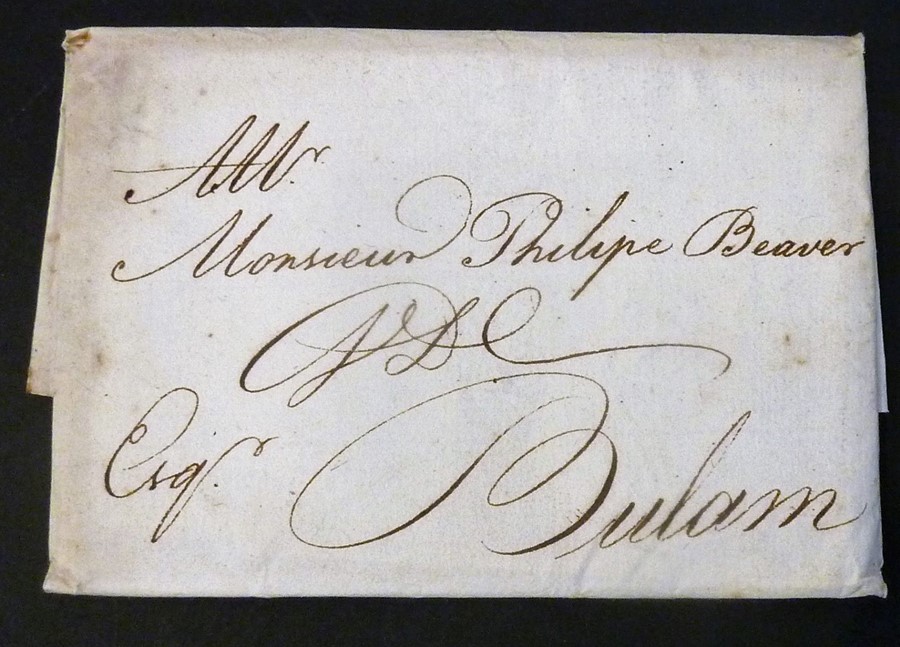 Monsieur Philipe Beaver
Esqr.
Bulam